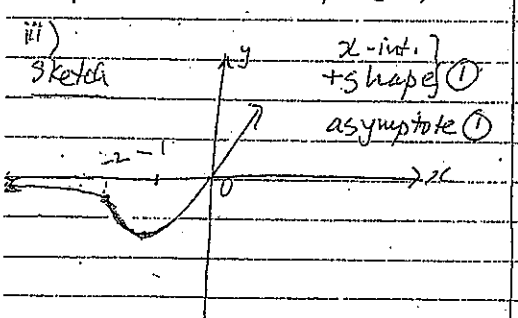 iii)
sketch
y
x-int. }
+shape } ①
asymptote ①
-2 -1
0
x